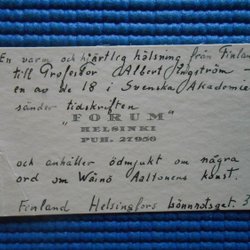 En varm och hjärtlig hälsning från Finland
till Professor Albert Engström
en av de 18 i Svenska Akademien
sänder tidskriften
"FORUM"
HELSINKI
PUH. 27956
och anhåller ödmjukt om några
ord om Wäinö Aaltonens konst.
Finland Helsingfors